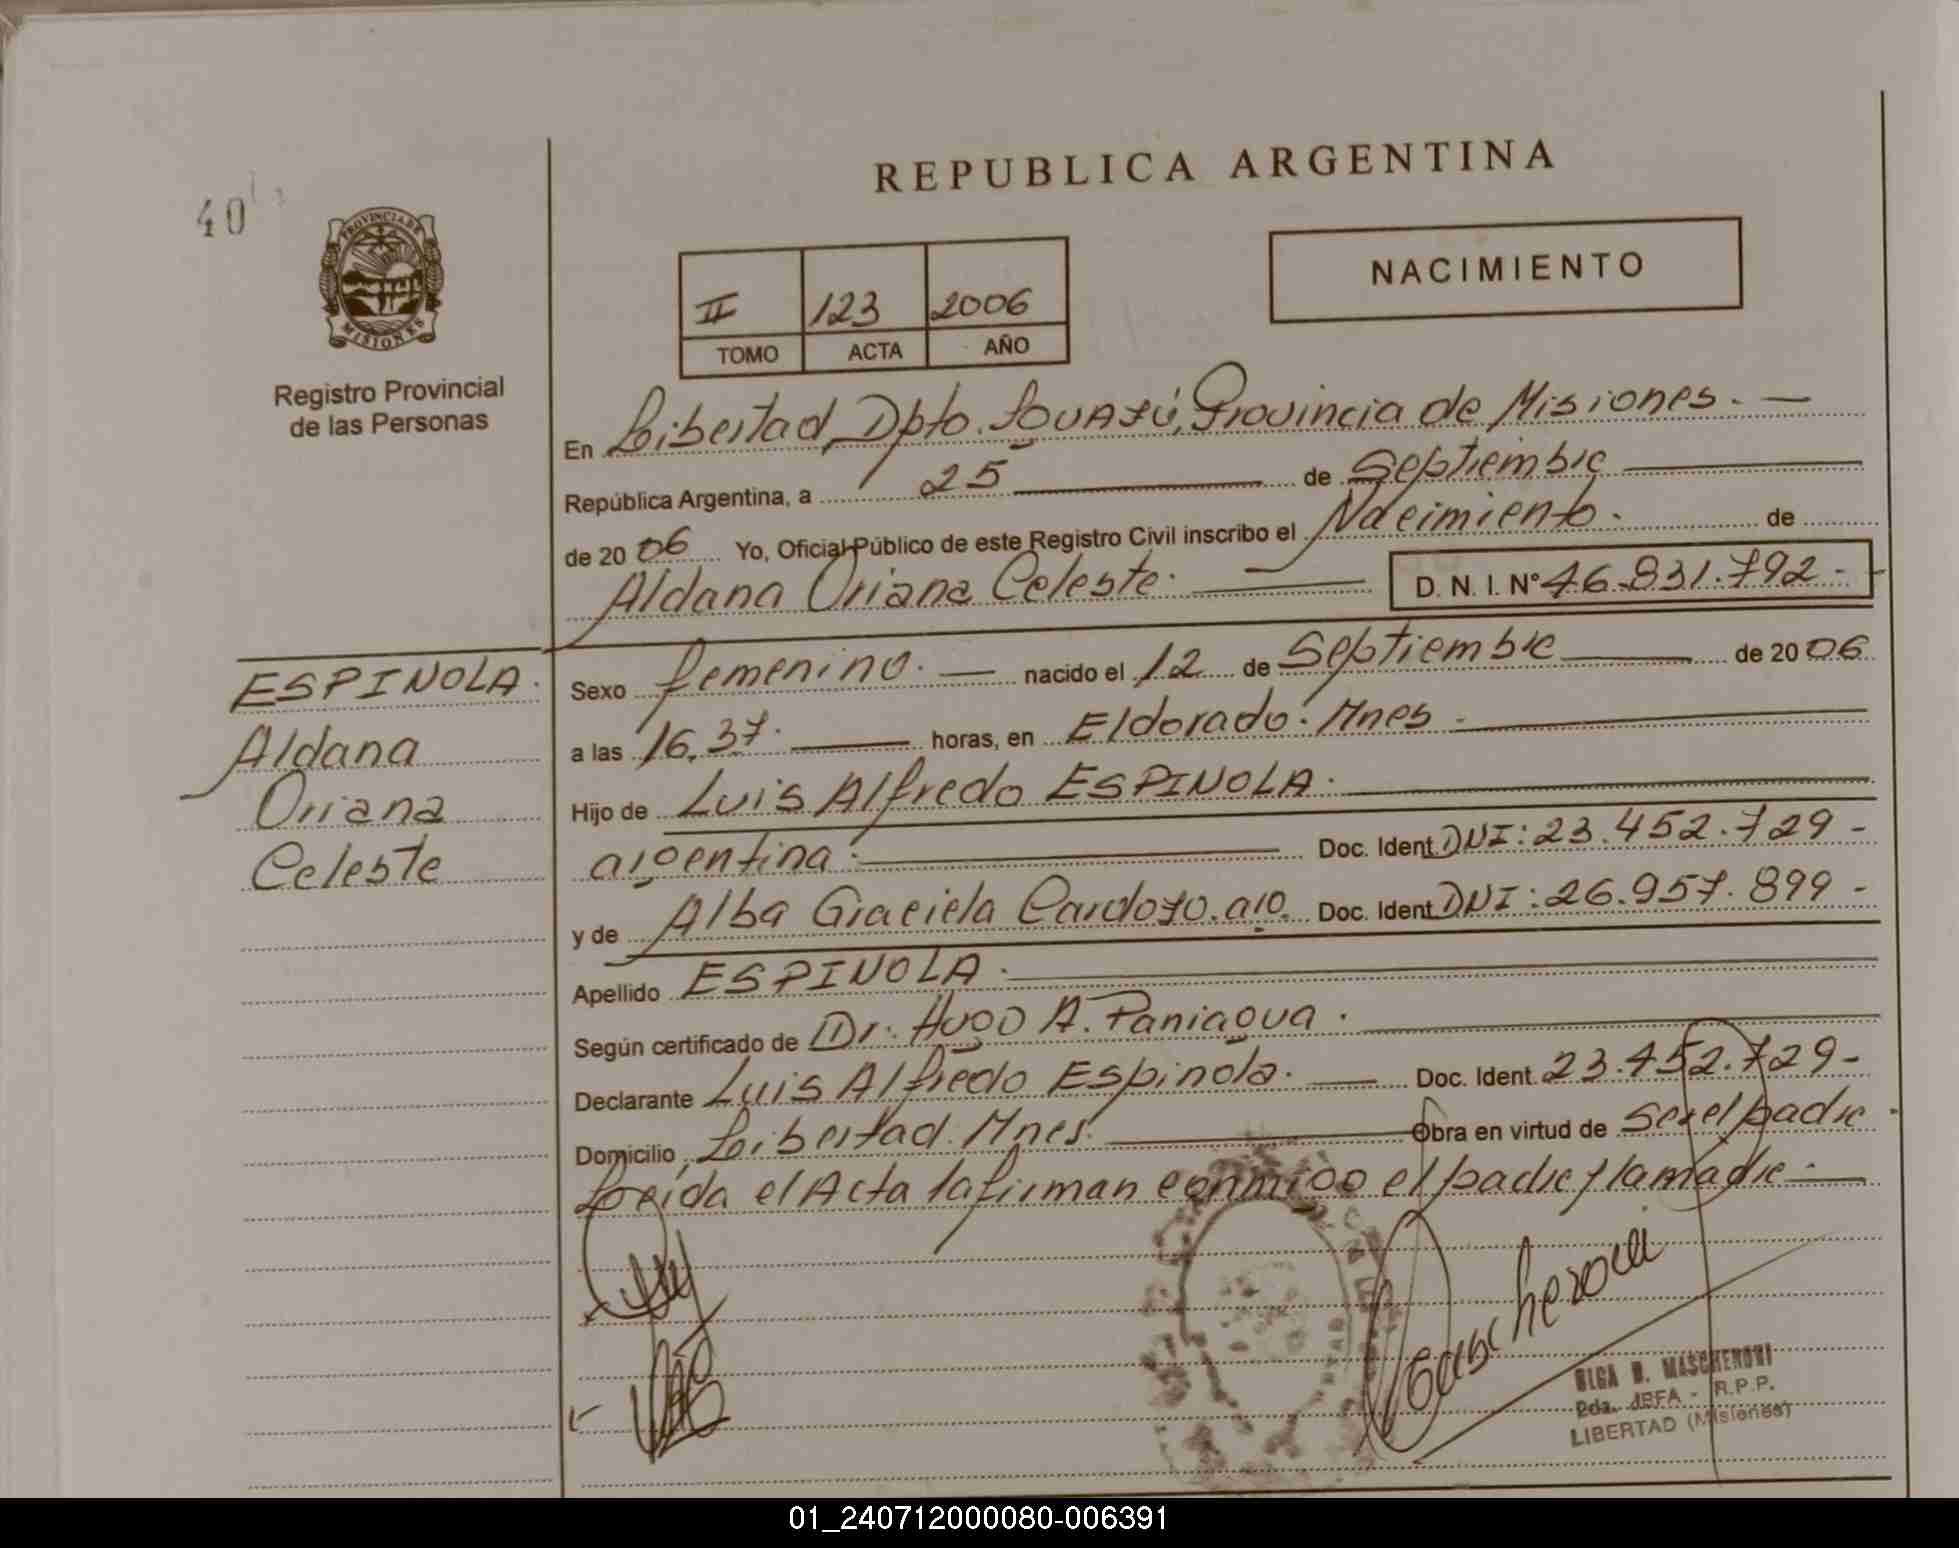 REPUBLICA ARGENTINA
40
PROVINCIA DE
MISIONES
Registro Provincial
de las Personas
II 123 2006
TOMO ACTA AÑO
NACIMIENTO
En Libertad, Dpto. Iguazú, Provincia de Misiones. —
República Argentina, a 25 de Septiembre
de 2006 Yo, Oficial Público de este Registro Civil inscribo el Nacimiento. de
Aldana Oriana Celeste. D. N. I. Nº 46.831.792-
ESPINOLA.
Aldana
Oriana
Celeste
Sexo femenino. — nacido el 12 de Septiembre de 2006
a las 16.37. horas, en Eldorado. Mnes.
Hijo de Luis Alfredo ESPINOLA.
argentina. Doc. Ident. DNI: 23.452.729-
y de Alba Graciela Cardozo. arg. Doc. Ident. DNI: 26.957.899-
Apellido ESPINOLA.
Según certificado de Dr. Hugo A. Paniagua.
Declarante Luis Alfredo Espinola. — Doc. Ident. 23.452.729-
Domicilio, Libertad. Mnes. Obra en virtud de ser el padre.
Leída el Acta la firman conmigo el padre y la madre. —
OLGA B. MASCHERONI
2da. JEFA - R.P.P.
LIBERTAD (Misiones)
01_240712000080-006391